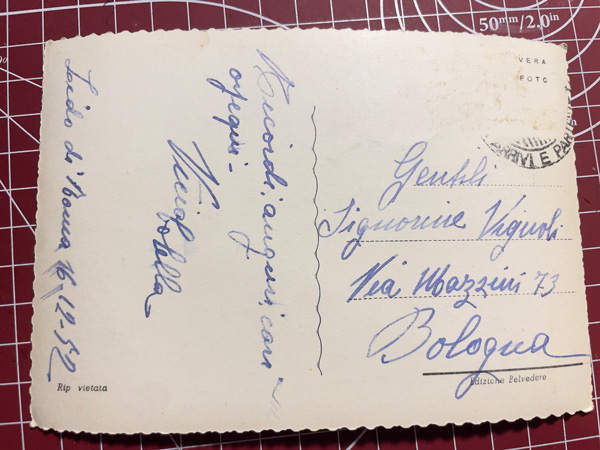 Lido di Roma 16-12-52
Ricordi, auguri, cari
ossequi -
VERA
FOTO
ARRIVI E PARTENZE
Gentili
Signorine Vignoli
Via Mazzini 73
Bologna
Rip vietata
Edizione Belvedere
50mm/2.0in